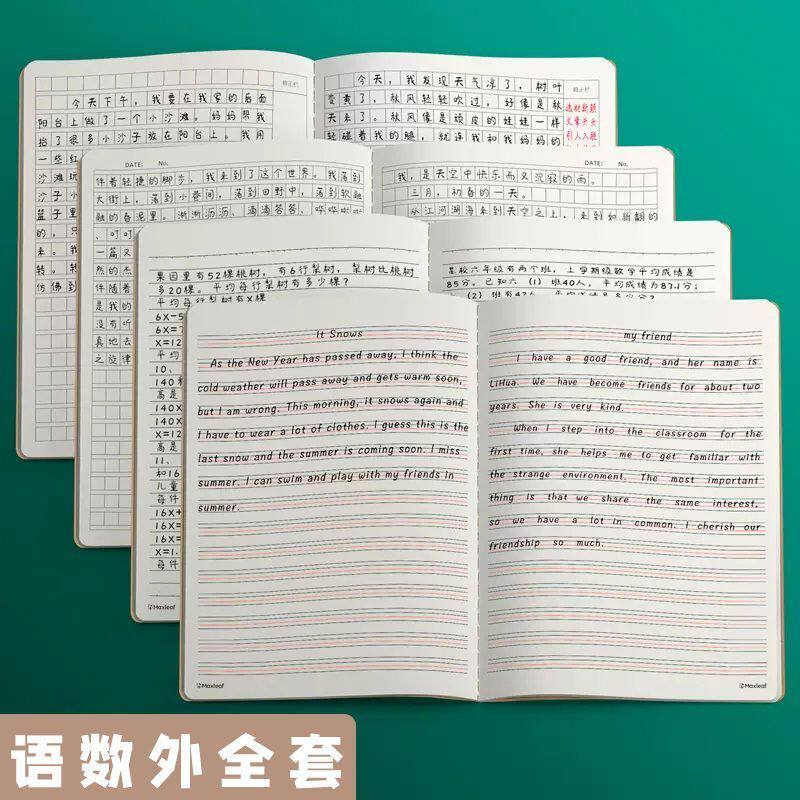 今天下午，我要在我家的后面
阳台上做了一个小沙滩。妈妈帮我
挡了很多小沙子放在阳台上。我用
一些红
沙滩玩
沙子小
篮子里
的，只
来。我
转。转
仿佛到
今天，我发现天气凉了，树叶
变黄了，秋风轻轻吹过，好像是秋
天来了。秋风像是顽皮的娃娃一样
轻碰着我的腿，就连我和我妈妈的
选材新颖
文章开头
引人入胜
DATE: No.
伴着轻捷的脚步，我来到了这个世界。我落到
大街上，落到小巷间，落到田野中，落到软融
融的春泥里。淅淅沥沥、滴滴答答、哗哗啦啦
、叮叮
一篇又
然的杰
伴随着
是我的
没有听
真地去
之旋律
DATE: No.
我，是天空中快乐而又沉寂的雨。
三月，初春的一天。
从江河湖海来到天空之上，来到如新翻的
果园里有52棵桃树，有6行梨树，梨树比桃树
多20棵。平均每行梨树有多少棵？
平均每行梨树有X棵
6X-5
6X=7
X=12
平均
10、
140和
高是
140X
140X
X=12
高是
11、
和16
儿童
每件
16X+
16X+
16X=
X=1.
每件
Maxleaf
某校六年级有两个班，上学期级数学平均成绩是
85分。已知六（1）班40人，平均成绩为87.1分；
It Snows
As the New Year has passed away, I think the
cold weather will pass away and gets warm soon,
but I am wrong. This morning, it snows again and
I have to wear a lot of clothes. I guess this is the
last snow and the summer is coming soon. I miss
summer. I can swim and play with my friends in
summer.
Maxleaf
my friend
I have a good friend, and her name is
LiHua. We have become friends for about two
years. She is very kind.
When I step into the classroom for the
first time, she helps me to get familiar with
the strange environment. The most important
thing is that we share the same interest,
so we have a lot in common. I cherish our
friendship so much.
Maxleaf
语数外全套